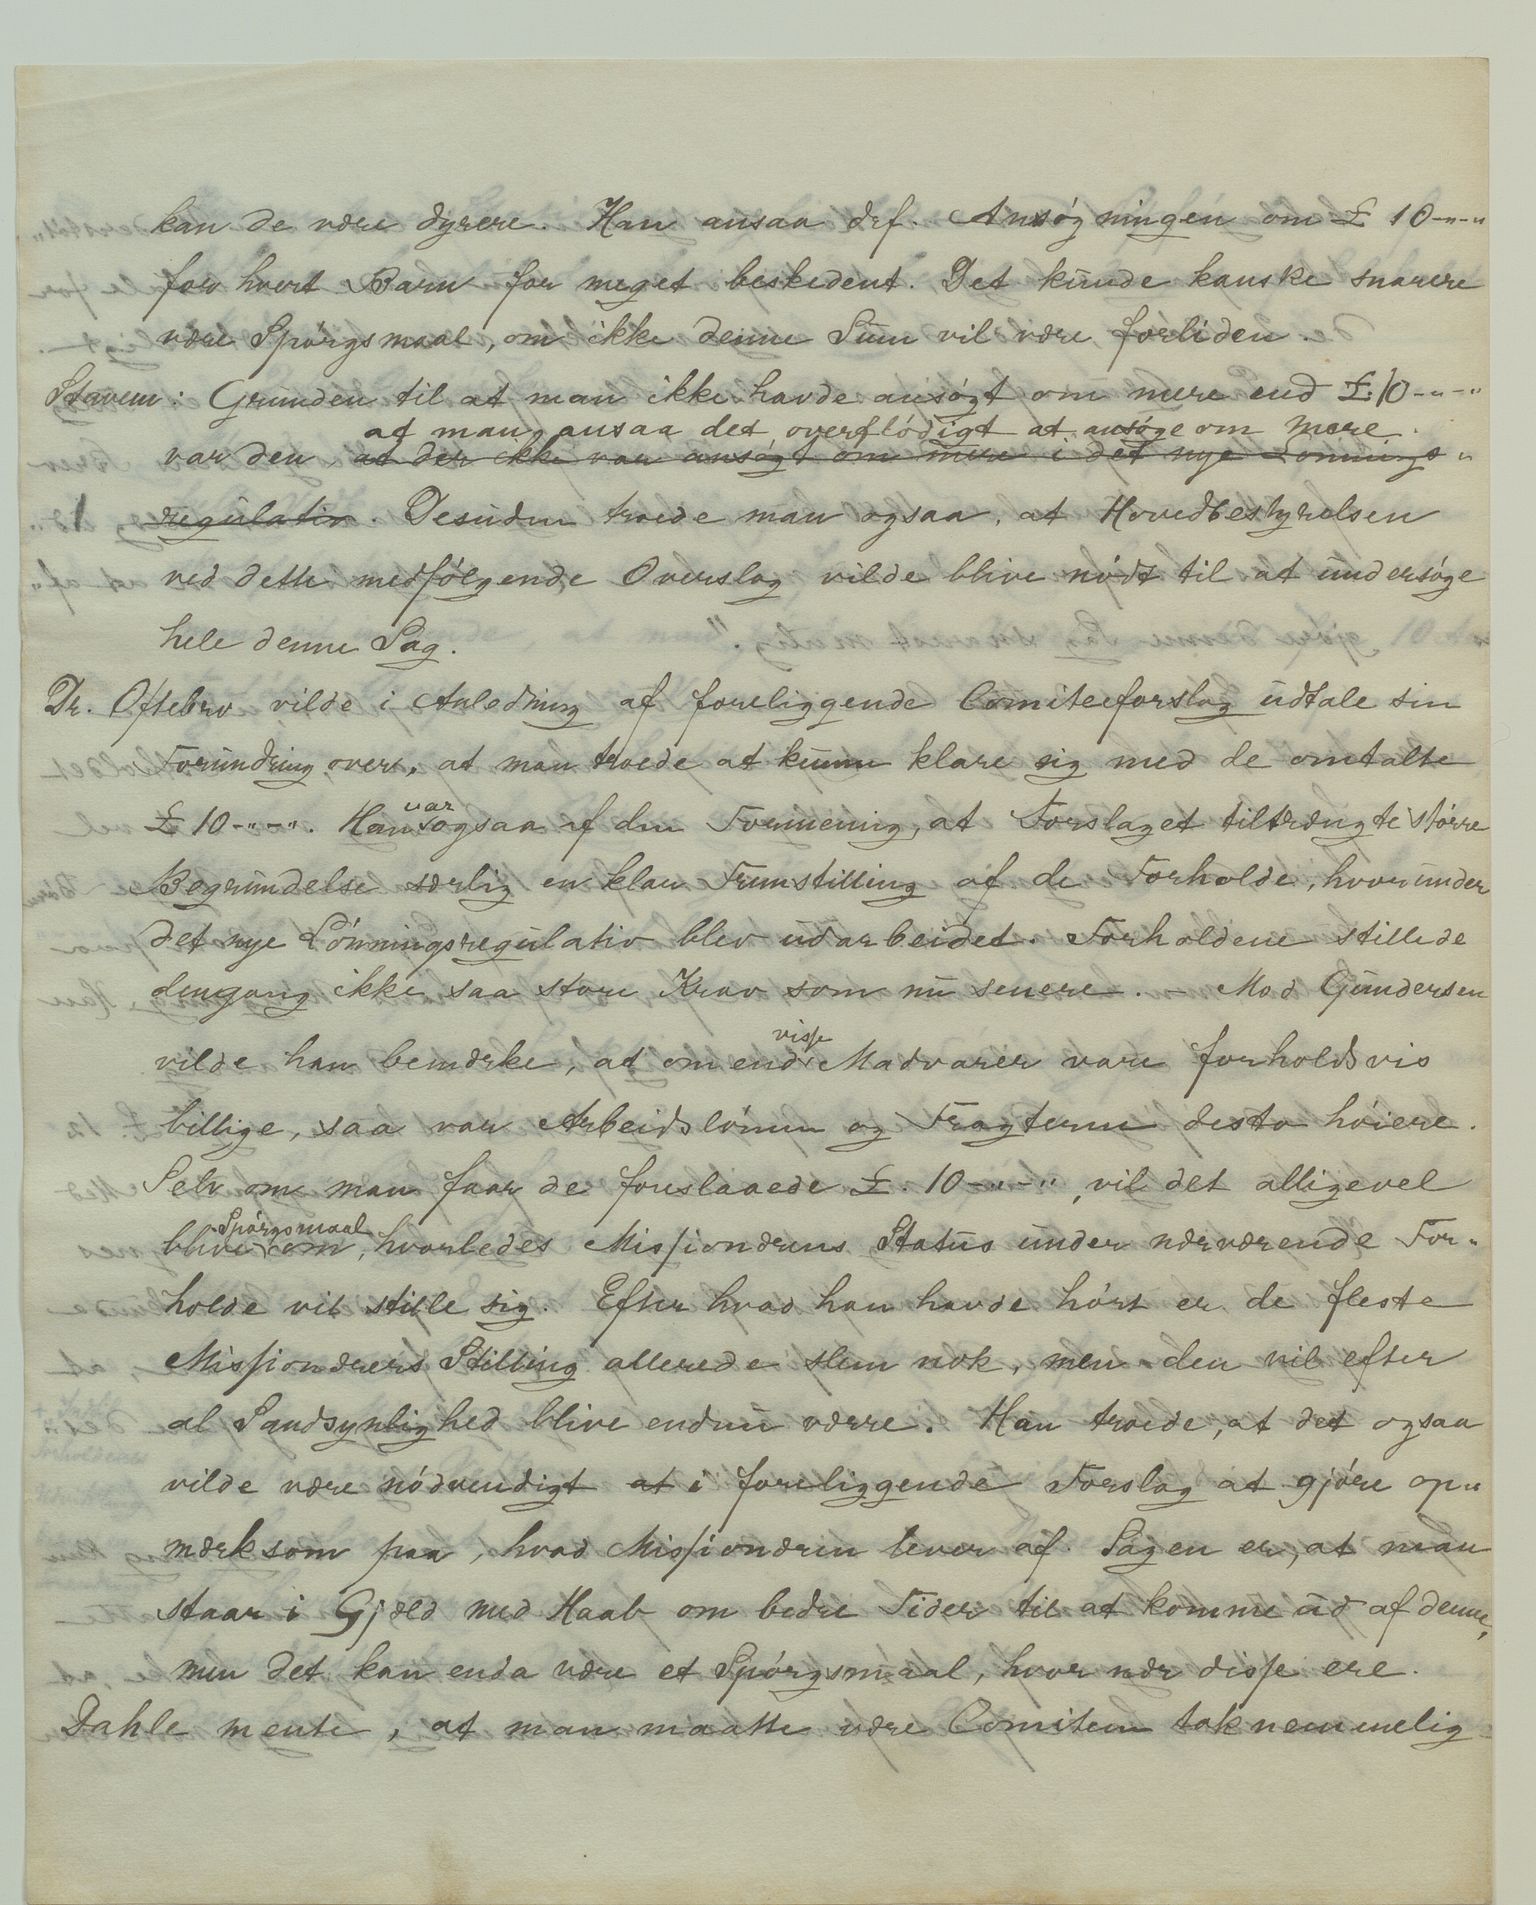 kan de være dyrere. Han ansaa drf. Ansøgningen om £ 10-"-"
for hvert Barn for meget beskedent. Det kunde kanske snarere
være Spørgsmaal, om ikke denne Sum vil være forliden.
Stavem: Grunden til at man ikke havde ansøgt om mere end £ 10-"-"
at man ansaa det overflødigt at ansøge om mere.
var den at der ikke var ansøgt om mere i det nye Lønnings-
regulativ. Desuden troede man ogsaa, at Hovedbestyrelsen
ved dette medfølgende Overslag vilde blive nødt til at undersøge
hele denne Sag.
Dr. Oftebro vilde i Anledning af foreliggende Comiteeforslag udtale sin
Forundring over, at man troede at kunne klare sig med de omtalte
var
£ 10-"-". Han ogsaa af den Formening, at Forslaget tiltrængte større
Begrundelse særlig en klar Fremstilling af de Forholde, hvorunder
det nye Lønningsregulativ blev udarbeidet. Forholdene stillede
dengang ikke saa store Krav som nu senere. - Mod Gundersen
visse
vilde han bemærke, at om end Madvarer vare forholdsvis
billige, saa var Arbeidslønnen og Fragterne desto høiere.
Selv om man faar de foreslaaede £. 10-"-", vil det alligevel
Spørgsmaal
blive om, hvorledes Missionærens Status under nærværende For-
holde vil stille sig. Efter hvad han havde hørt er de fleste
Missionærers Stilling allerede slem nok, men den vil efter
al Sandsynlighed blive endnu værre. Han troede, at det ogsaa
vilde være nødvendigt at i foreliggende Forslag at gjøre op-
mærksom paa, hvad Missionæren lever af. Sagen er, at man
staar i Gjæld med Haab om bedre Tider til at komme ud af denne,
men det kan enda være et Spørgsmaal, hvor nær disse ere.
Dahle mente, at man maatte være Comiteen taknemmelig